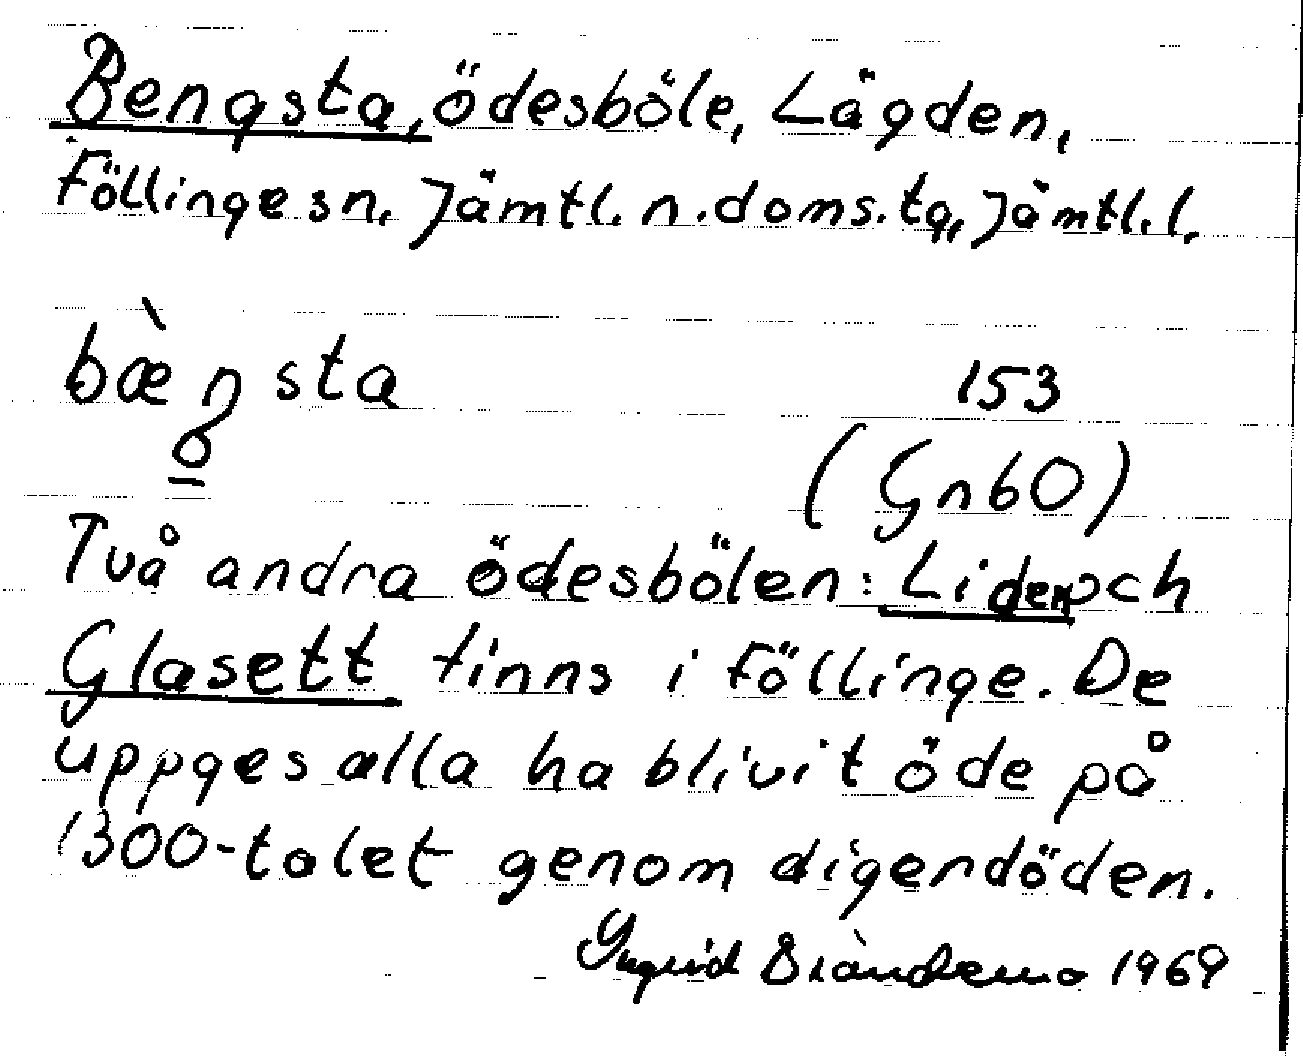 Bengsta, ödesböle, Lägden,
Föllinge sn, Jämtl. n. doms. tg, Jämtl. l.
bæ̀ŋsta
153
(Gn 60)
Två andra ödesbölen: Liden och
Glasett finns i Föllinge. De
uppges alla ha blivit öde på
1300-talet genom digerdöden.
Ingrid 1969